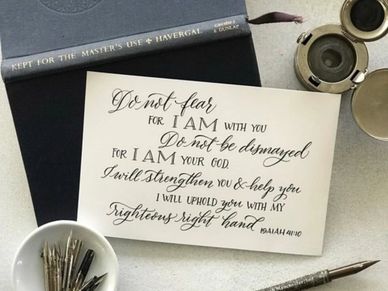 KEPT FOR THE MASTER'S USE + HAVERGAL
GROSSET
& DUNLAP
Do not fear
FOR I AM WITH YOU
Do not be dismayed
FOR I AM YOUR GOD.
I will strengthen you & help you
I WILL UPHOLD you WITH MY
righteous right hand ISAIAH 41:10